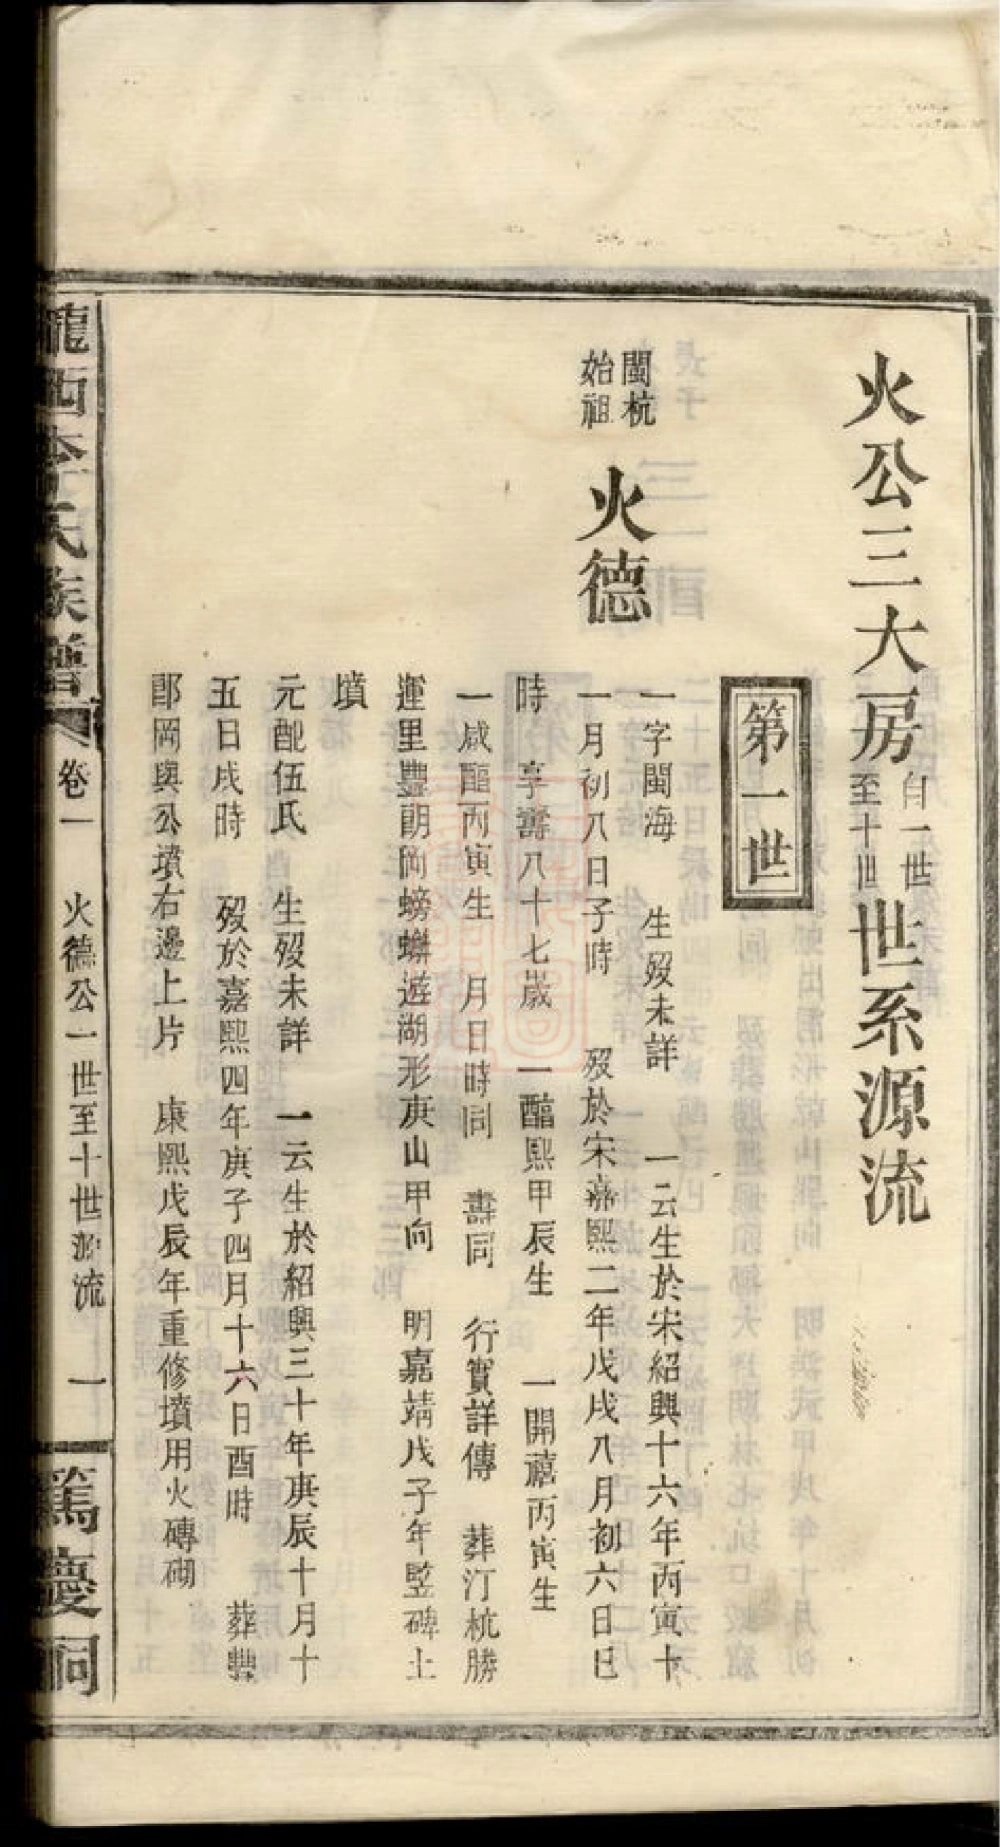 火公三大房自一世至十世世系源流
第一世
閩杭始祖
火德
一字閩海 生歿未詳 一云生於宋紹興十六年丙寅十
一月初八日子時 歿於宋嘉熙二年戊戌八月初六日巳
時 享壽八十七歲 一醢熙甲辰生 一開禧丙寅生
一咸醢丙寅生 月日時同 壽同 行實詳傳 葬汀杭勝
運里豐朗岡螃蠏遊湖形庚山甲向 明嘉靖戊子年竪碑土
墳
元配伍氏 生歿未詳 一云生於紹興三十年庚辰十月十
五日戌時 歿於嘉熙四年庚子四月十六日酉時 葬豐
郎岡與公墳右邊上片 康熙戊辰年重修墳用火磚砌
隴西李氏族譜
卷一 火德公一世至十世源流 一
篤慶祠